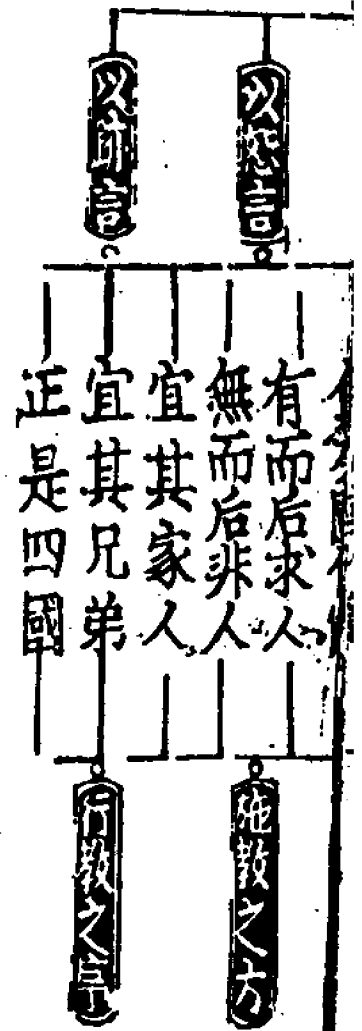 以恕言
以詩言
有而后求人
無而后非人
宜其家人
宜其兄弟
正是四國
施教之方
行教之